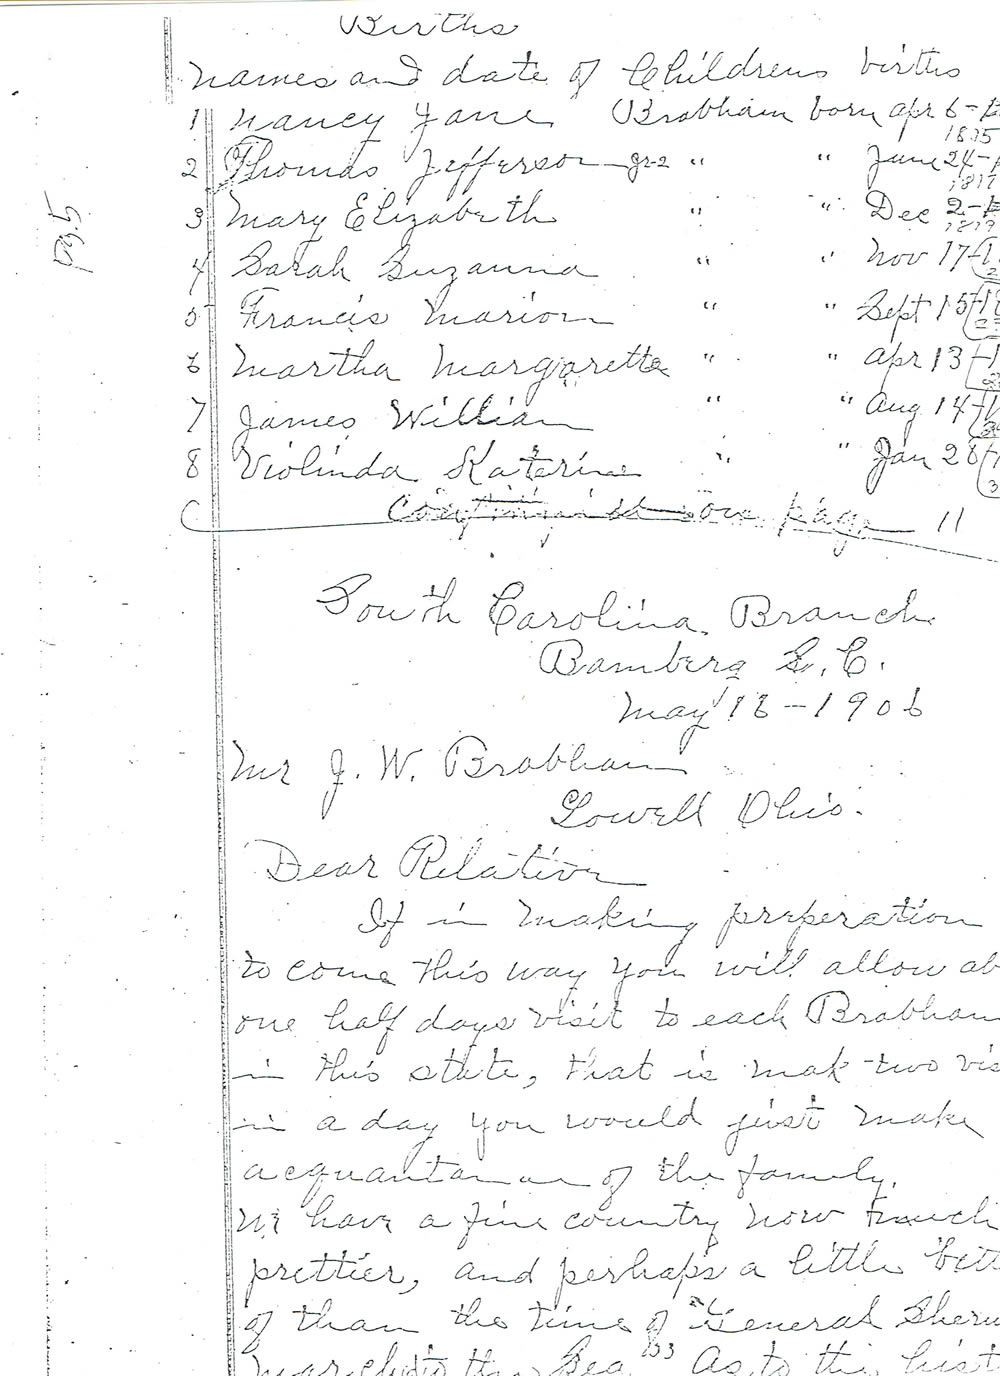 Births
Names and date of Childrens births
pg. 5
1 Nancy Jane Brabham born apr 6-
1815
2 Thomas Jefferson gr-2 " " June 24-
1817
3 Mary Elizabeth " " Dec 2-
1819
4 Sarah Suzanna " " Nov 17-
5 Francis Marion " " Sept 15
6 Martha Margarette " " apr 13
7 James William " " Aug 14
8 Violinda Katerine " " Jan 28
page 11
South Carolina Branch
Bamberg S. C.
May 18-1906
Mr J. W. Brabham
Lowell Ohio.
Dear Relative
If in making preperation
to come this way you will allow ab
one half days visit to each Brabham
in this state, that is mak two vis
in a day you would just make
acquantance of the family.
We have a fine country now much
prettier, and perhaps a little bett
of than the time of General Sherm
march to the Sea As to the hist